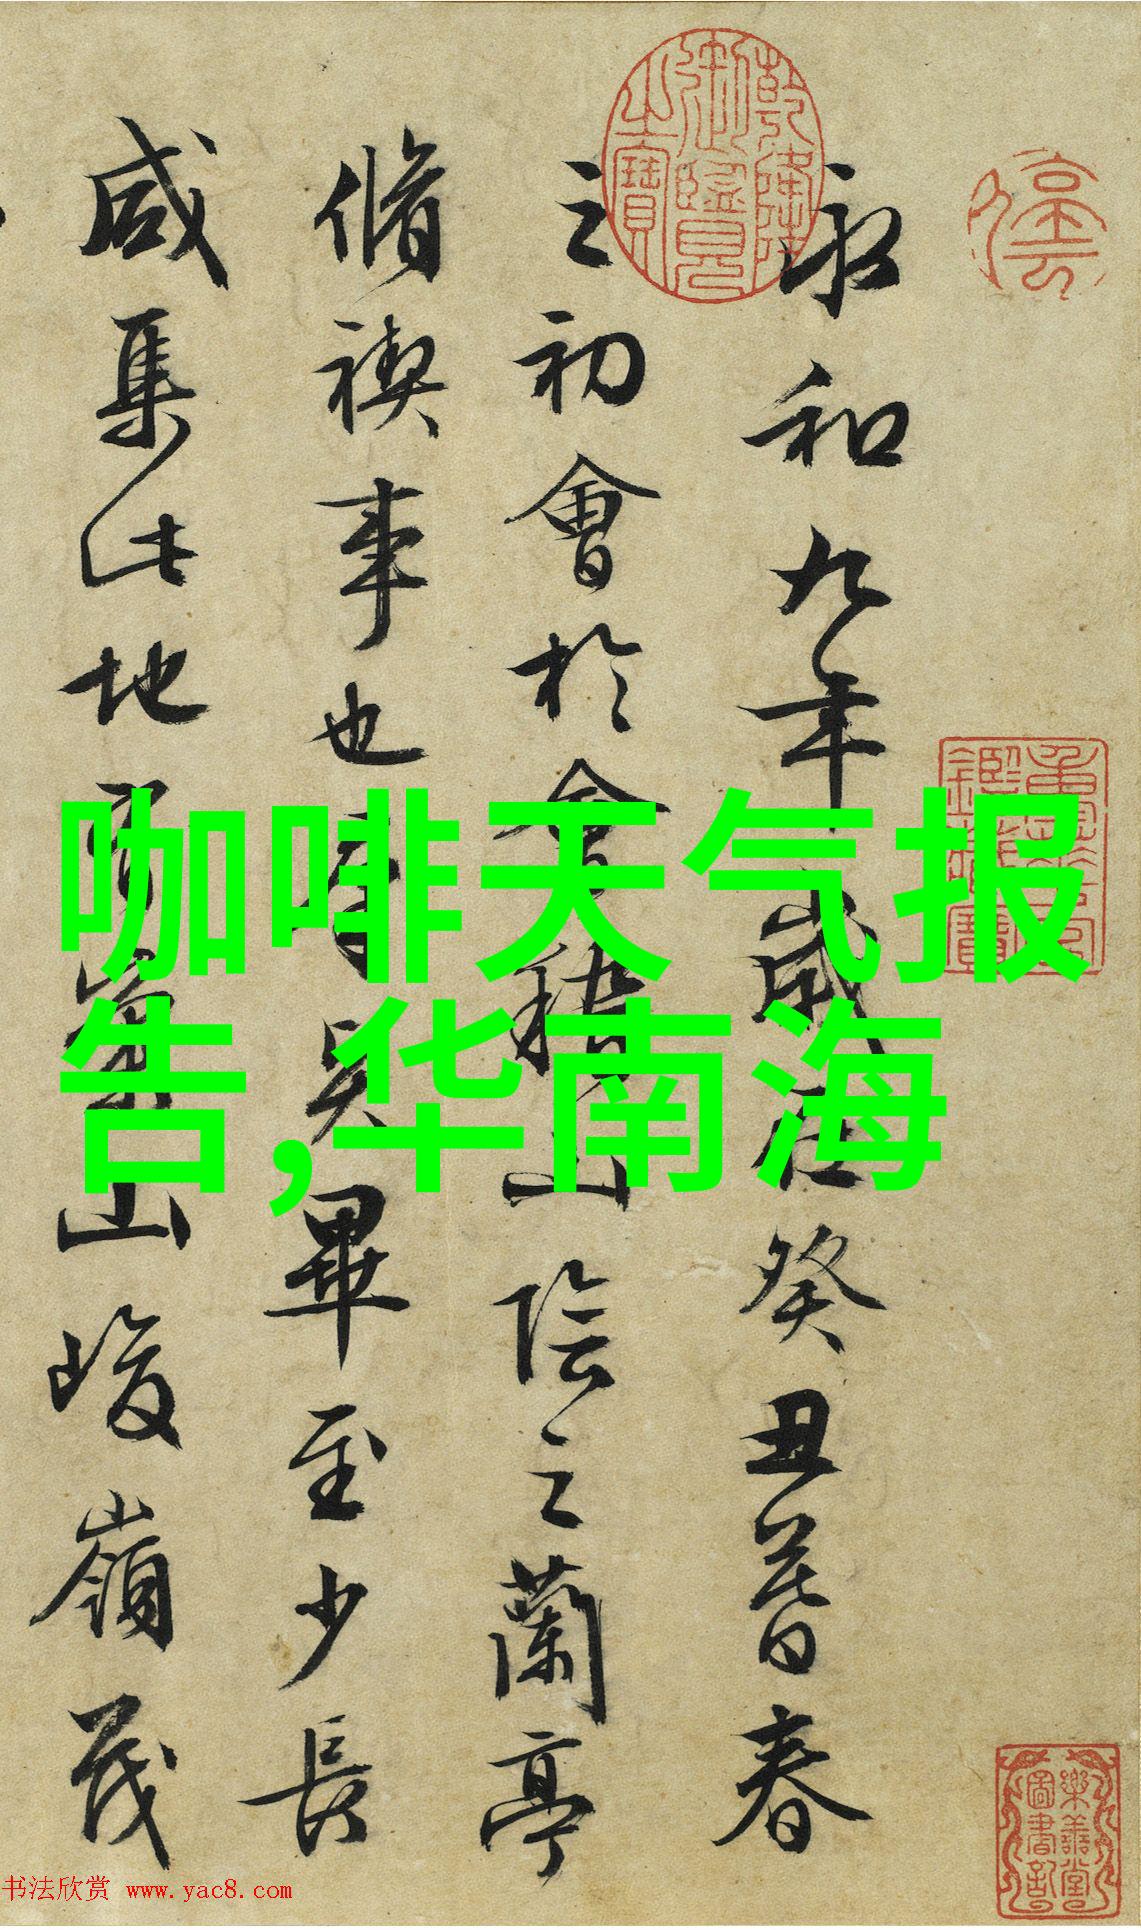 永和九年歲在癸丑暮春
之初會於會稽山陰之蘭亭
脩禊事也群賢畢至少長
咸集此地有崇山峻嶺茂
咖啡天气报
告,华南海
乾隆御覽之寶
樂善堂圖書記
书法欣赏 www.yac8.com